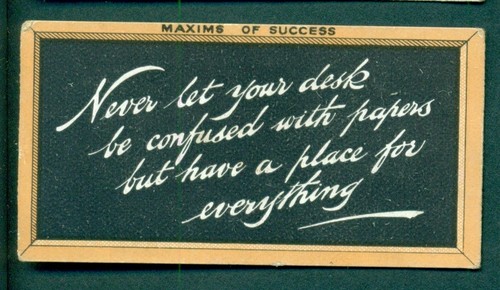 MAXIMS OF SUCCESS
Never let your desk
be confused with papers
but have a place for
everything